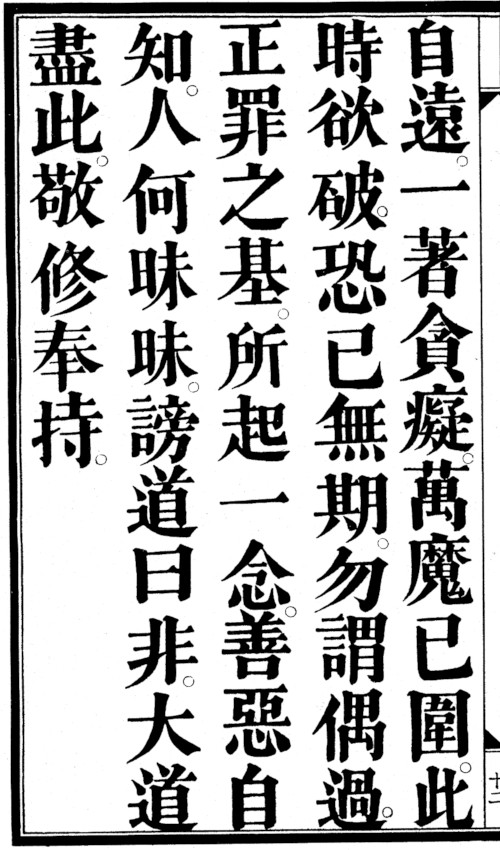 自遠。一著貪癡。萬魔已圍。此
時欲破。恐已無期。勿謂偶過。
正罪之基。所起一念。善惡自
知。人何昧昧。謗道曰非。大道
盡此。敬修奉持。
廿二